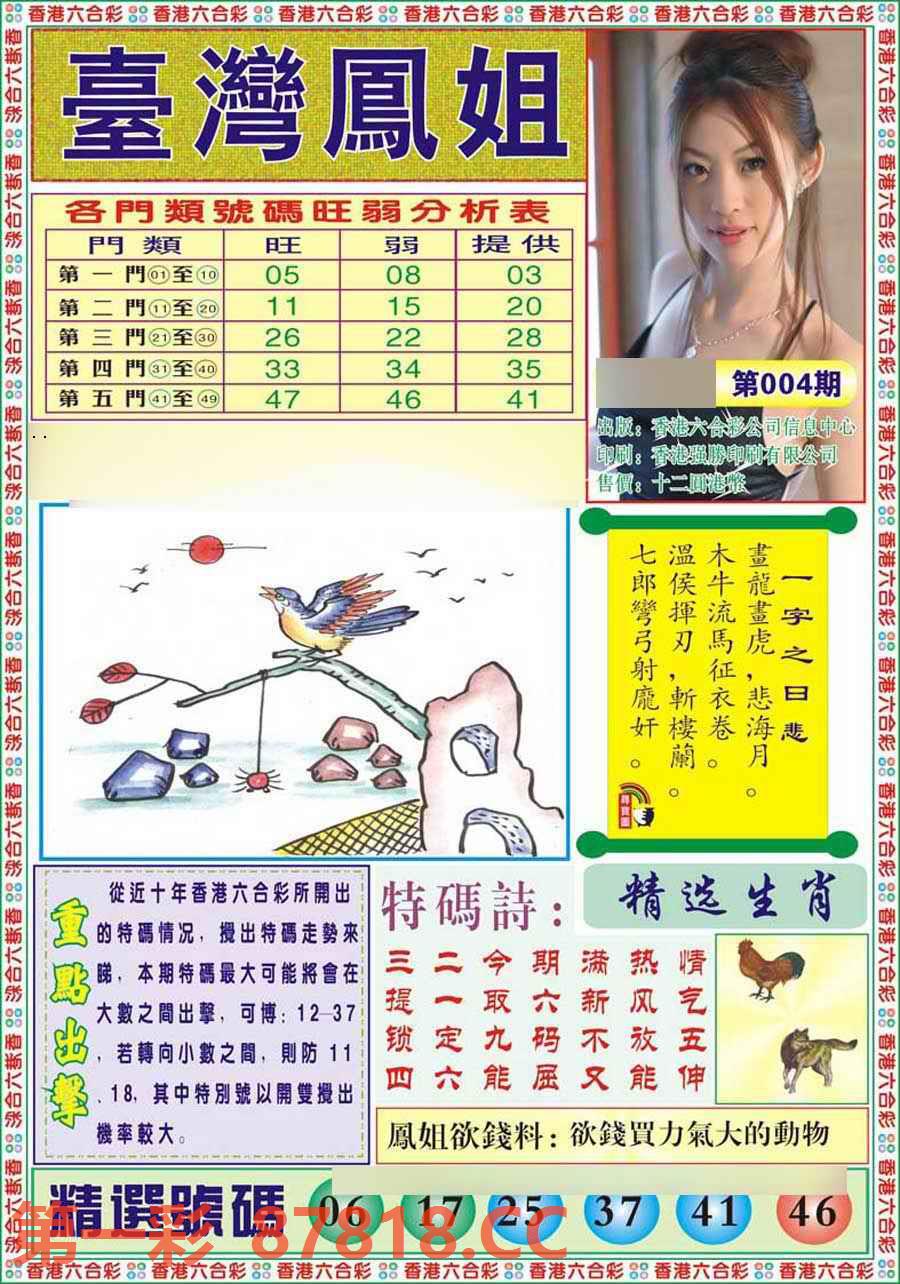 香港六合彩 香港六合彩 香港六合彩 香港六合彩 香港六合彩 香港六合彩 香港六合彩
臺灣鳳姐
各門類號碼旺弱分析表
門類 旺 弱 提供
第一門01至10 05 08 03
第二門11至20 11 15 20
第三門21至30 26 22 28
第四門31至40 33 34 35
第五門41至49 47 46 41
第004期
出版：香港六合彩公司信息中心
印刷：香港强勝印刷有限公司
售價：十二圓港幣
一字之曰悲
畫龍畫虎，悲海月。
木牛流馬征衣卷。
溫侯揮刃，斬樓蘭。
七郎彎弓射龐奸。
尋寶圖
重點出擊
從近十年香港六合彩所開出
的特碼情况，攪出特碼走勢來
睇，本期特碼最大可能將會在
大數之間出擊，可博：12—37
，若轉向小數之間，則防 11
、18，其中特別號以開雙攪出
機率較大。
特碼詩：
三二今期满热情
提一取六新风气
锁定九码不放五
四六能屈又能伸
精选生肖
鳳姐欲錢料：欲錢買力氣大的動物
精選號碼 06 17 25 37 41 46
第一彩 87818.CC
香港六合彩 香港六合彩 香港六合彩 香港六合彩 香港六合彩 香港六合彩 香港六合彩